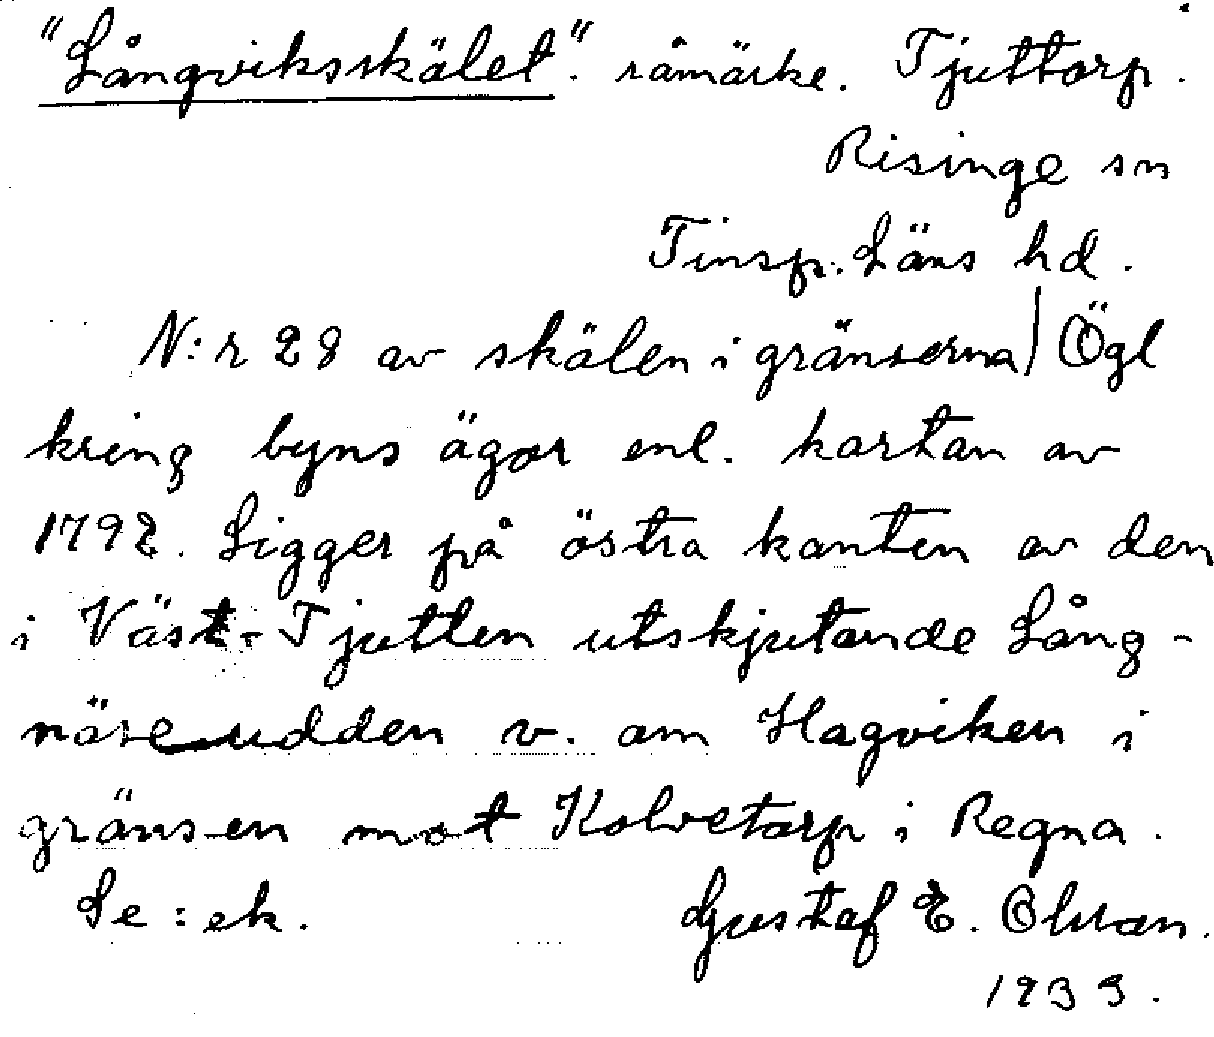 "Långviksskälet". råmärke. Tjuttorp.
Risinge sn
Finsp. Läns hd.
N:r 28 av skälen i gränserna / Ögl
kring byns ägor enl. kartan av
1792. Ligger på östra kanten av den
i Väst-Tjutten utskjutande Lång-
näse udden v. om Hagviken i
gränsen mot Kolvetorp i Regna.
Se: ek. Gustaf E. Olsson.
1933.